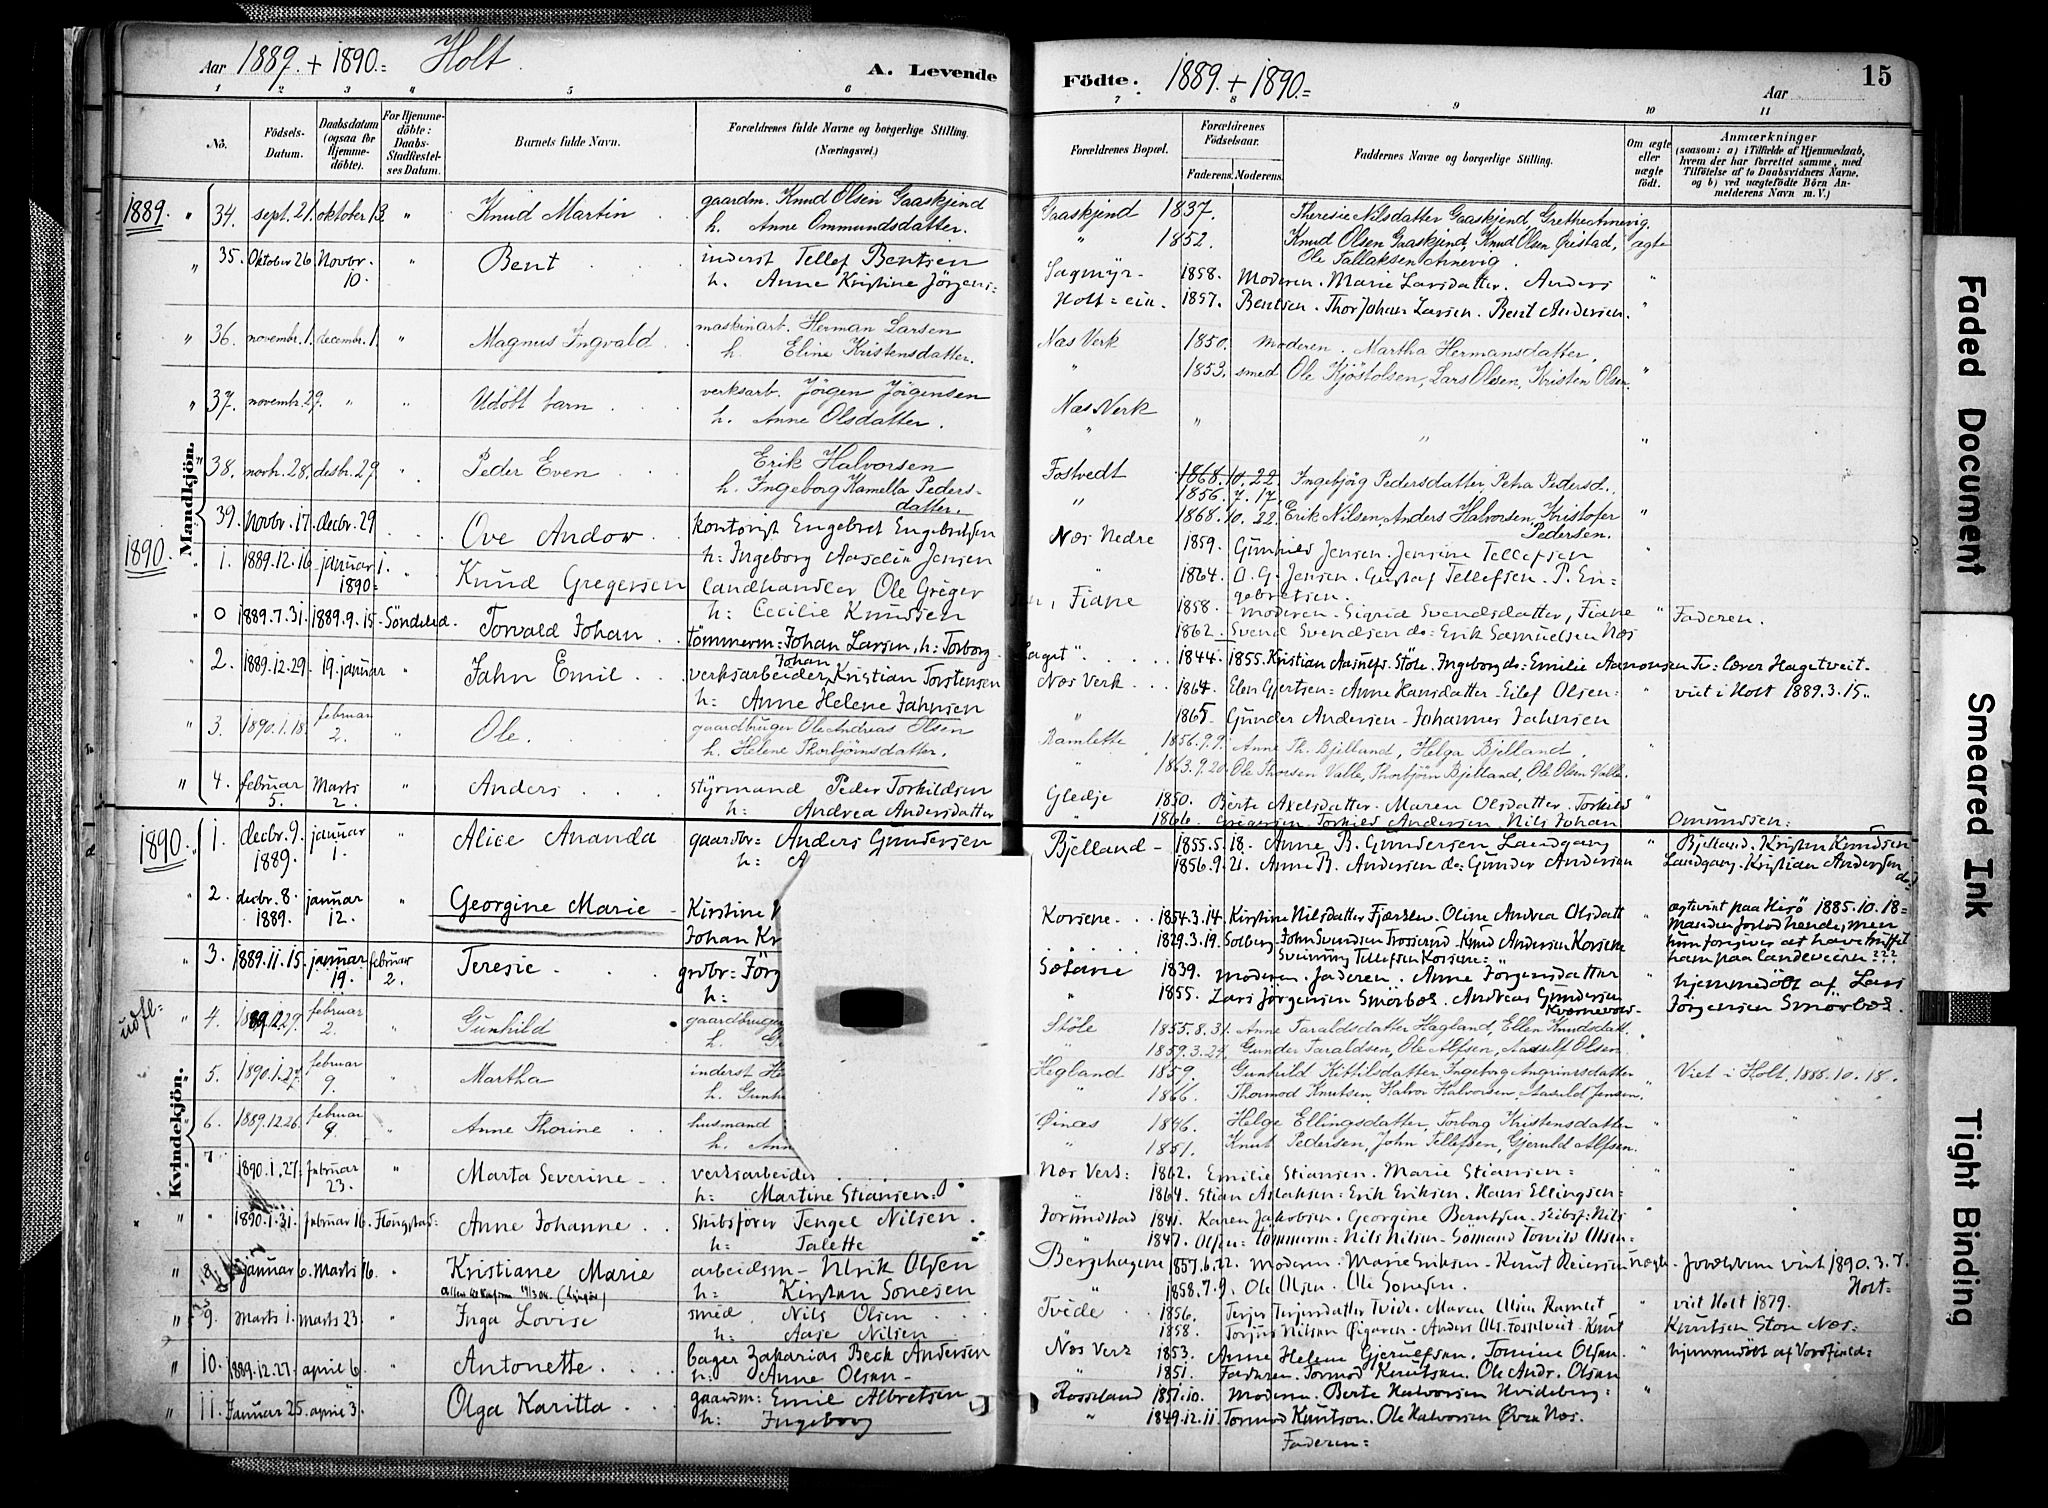 Aar 1889. + 1890.= Holt. A. Levende
Födte. 1889. + 1890.= Aar 15
1 2 3 4 5 6 7 8 9 10 11
No. Födsels-Datum. Daabsdatum (ogsaa for Hjemme-döbte). For Hjemme-döbte: Daabs-Stadfæstel-ses Datum. Barnets fulde Navn. Forældrenes fulde Navne og borgerlige Stilling. (Næringsvei.)
Forældrenes Bopæl. Forældrenes Födselsaar. Faderens. Moderens. Faddernes Navne og borgerlige Stilling. Om ægte eller uægte födt. Anmærkninger (saasom: a) i Tilfælde af Hjemmedaab, hvem der har forrettet samme, med Tilföielse af to Daabsvidners Navne, og b) ved uægtefödte Börn An-melderens Navn m. V.)
Mandkjön.
1889. " 34. sept. 21. oktober 13. " Knud Martin gaardm. Knud Olsen Gaaskjend
h. Anne Ommundsdatter.
Gaaskjend 1837. Theresie Nilsdatter Gaaskjend Grethe Arnevig.
" 1852. Knud Olsen Gaaskjend, Knud Olsen, ægte
Ole Tallaksen Arnevig.
" 35. Oktober 26. Novbr. 10. " Bent inderst Tellef Bentsen
h. Anne Kristine Jörgens=
1858. Moderen. Marie Larsdatter. Anders "
Holt= 1857. Bentsen. Thor Johan Larsen. Bent Andersen. "
" 36. novembr. 1. decembr. 1. " Magnus Ingvald maskinarb. Herman Larsen
h. Eline Kristensdatter.
Næs Verk 1850. Moderen. Martha Hermansdatter,
" 1853. smed Ole Kjöstolsen, Lars Olsen, Kristen Olsen. "
" 37. novembr. 29. " " Udöbt barn verksarb. Jörgen Jörgensen
h. Anne Olsdatter.
Næs Verk
" " " "
" 38. novb. 28. desbr. 29 " Peder Even Erik Halvorsen
h. Ingeborg Kamella Peders-
datter.
Fostvedt 1868. 10. 22. Ingebjörg Pedersdatter, Petra Pedersd.
" 1856. 7. 17.
1868. 10. 22. Erik Nilsen, Anders Halvorsen, Kristofer "
Pedersen.
39. Novbr. 17. decbr. 29 Ove Andow kontorist Engebret Engebretsen
h: Ingeborg Aaselin Jensen
Næs Nedre 1859. Gunhild Jensen. Jensine Tellefsen "
1864. O. G. Jensen. Gustaf Tellefsen. P. En=
gebretsen.
1890. " 1. 1889.12.16. januar 1. 1890= " Knud Gregersen landhandler Ole Greger
h: Cecilie Knudsen
Fiane 1858. Moderen. Sigrid Svendsdatter, Fiane " Faderen.
1862. Svend Svendsen do: Erik Samuelsen Næs
" 0 1889.7.31. 1889.9.15. Söndeled. Torvald Johan tömmerm= Johan Larsen, h: Torborg
1844. 1855. Kristian Stöle. Ingeborg do: Emilie
" 2. 1889.12.29. 19. januar " Jahn Emil verksarbeider Johan Kristian Torstensen
h: Anne Helene Jahnsen
Næs Verk 1864. Elen Gjertsen= Anne Hansdatter. Eilef Olsen= " viet i Holt 1889.3.15.
" 1865. Gunder Andersen. Johannes Jahnsen
" 3. 1890.1.18. februar 2. " Ole. gaardbruger Ole Andreas Olsen
h. Helene Thorbjörnsdatter.
Ramlette 1856.9.9. Anne Th. Bjelland, Helga Bjelland, "
" 1863.9.20. Ole Thorsen Valle, Thorbjörn Bjelland, Ole Olsen Valle.
" 4. februar 5. Marts 2. " Anders styrmand Peder Torkildsen
h: Andrea Andersdatter
Gledje 1850. Berte Axelsdatter. Maren Olsdatter. Torkild "
" 1866. Gregersen Torkild Andersen Nils Johan Omundsen:
Kvindekjön.
1890. " 1. decbr. 9. 1889. januar 1. " Alice Ananda gaardbr= Anders Gundersen
h: A
Bjelland - 1855.5.18. Anne B. Gundersen Landgang " Bjelland. Kristen Knudsen
1856.9.21. Anne B. Andersen do: Gunder Andersen Landgang. Kristian Andersen do:
" 2. decbr. 8. 1889. januar 12. " Georgine Marie - Kirstine
Johan Kr
Korsene 1854.3.14. Kirstine Nilsdatter. Oline Andrea Olsdatt " ægteviet paa Hisö 1885.10.18=
1829.3.19. Solberg. John Svendsen. Knud Andersen Korsene Manden forlod hende, men
Svenning Tellefsen Korsene= hun foregiver at have truffet
ham paa landeveien???
" 3. 1889.11.15. januar 19. februar 2. Teresie grdbr= Jörg
h:
1839. Moderen. Faderen. Anne Jörgensdatter " hjemmedöbt af Lars
" 1855. Lars Jörgensen Smörbos. Andreas Gundersen Jörgensen Smörbos.
udfl= " 4. 1889.12.29. februar 2. " Gunhild gaardbruger
h. G
Stöle 1855.8.31. Anne Taraldsdatter Hagland, Ellen Knudsdatt. "
" 1859.3.24. Gunder Taraldsen, Ole Alfsen, Olsen.
" 5. 1890.1.27. februar 9. " Martha inderst He
h. Gunh
Hegland 1859. Gunhild Kittilsdatter, Ingeborg Angrimsdatter Viet i Holt 1888.10.18.
" 1866. Thormod Knutsen, Halvor Halvorsen, Jensen. "
" 6. 1889.12.26. februar 9. " Anne Thorine husmand
h. Ann
Øinæs 1846. Helge Ellingsdatter, Torborg Kristensdatter "
" 1851. Knut Pedersen, John Tellefsen, Gjeruld Alfsen.
7 1890.1.27. februar 23. " Marta Severine verksarbeider
h: Martine Stiansen=
Næs Verk= 1862. Emilie Stiansen. Marie Stiansen= "
" 1864. Stian Aslaksen= Erik Eriksen. Hans Ellingsen=
" " 1890.1.31. februar 16. Anne Johanne skibsförer Tengel Nilsen.
h: Talette
1841. Karen Jakobsen. Georgine Berntsen. Skibsf= Nils
" 1847. Olsen= Tömmerm= Nils Nilsen. Sömand Torvild Olsen=
" 8 januar 6. Marts 16. " Kristiane Marie arbeidsm- Ulrik Olsen
h: Kirstan Sonesen
Bergshagene 1857.6.22. Moderen. Marie Eriksen. Knut Reiersen uægte. Forældrene viet 1890.3.7.
1858.7.9. Ole Olsen. Ole Sonesen. Holt=
" 9. Marts 1. marts 23. " Inga Lovise smed Nils Olsen
h: Aase Nilsen
Tvede 1856. Terjer Terjersdatter Tvide. Maren Olsen Ramlet " viet Holt 1879.
" 1858. Torjus Nilsen. Anders Ols. Fosselveit. Knut Knutsen Ston Næs=
" 10. 1889.12.27. april 6. " Antonette bager Zakarias Beck Andersen
h: Anne Olsen-
Næs Verk 1853. Anne Helene Gjerulfsen. Tomine Olsen. "
" 1851. Faderen. Tormod Knutsen. Ole Andr. Olsen
" 11. Januar 25. april 3. Olga Karitta gaardm= Emil Albretsen
h: Ingeborg
Rosseland 1851.10. Moderen. Berte Halvorsen Hvideberg= "
" 1849.12.11. Tormod Knutson. Ole Halvorsen Øvre Næs.
Faderen=
Faded Document
Smeared Ink
Tight Binding